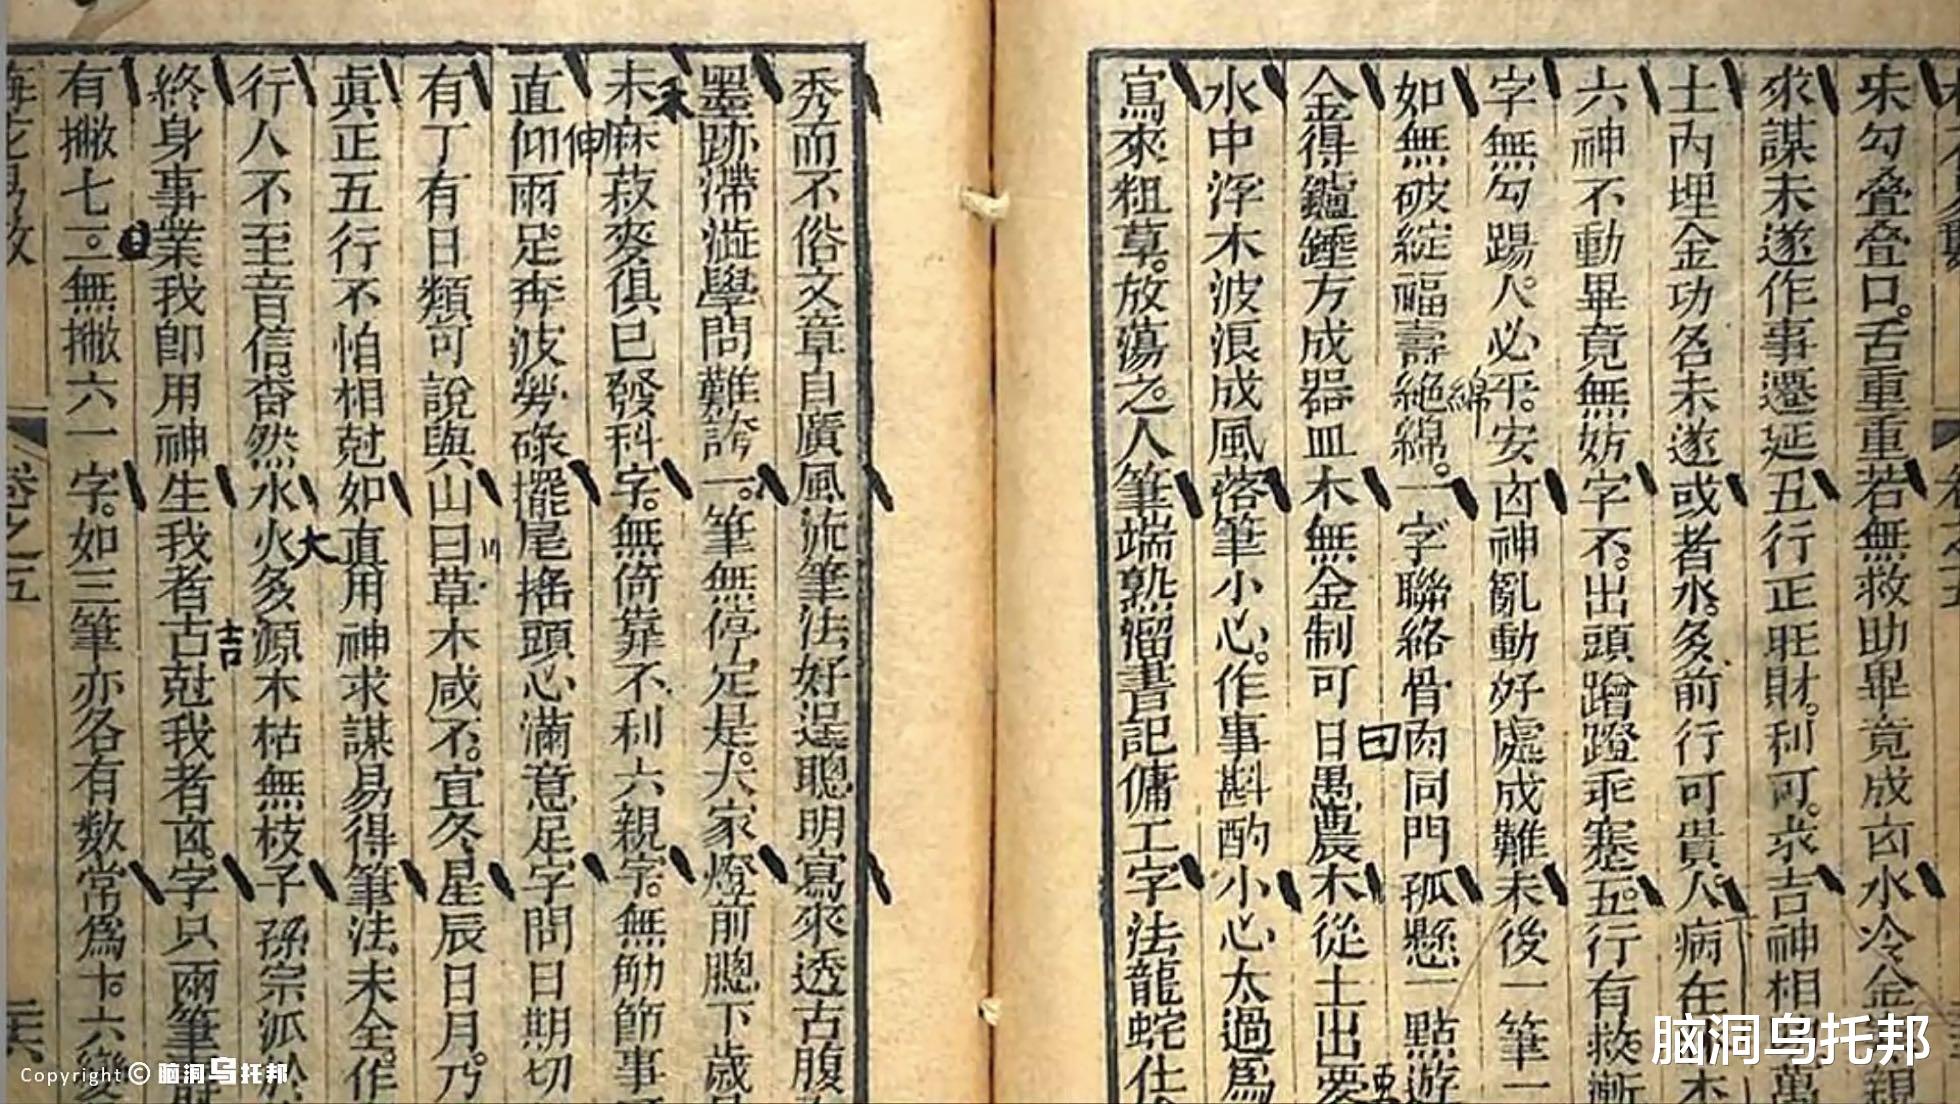 未勾叠叠口。舌重重若無救助畢竟成囱水冷金
求謀未遂作事遷延五行正旺財。利可。求吉神相
土内埋金功名未遂或者水。多前行可貴人病在
六神不動畢竟無妨字不。出頭蹭蹬乖蹇五。行有救漸
字無勾踢。人必平。安囱神亂動好處成難未後一筆一
如無破綻福壽絶綿。一字聯絡骨肉同門孤懸一點遊
綿
曰
金得鑪錘方成器皿木無金制可日愚農木從土出
水中浮木波浪成風落筆小心。作事斟酌小心太過爲
寫來粗草。放蕩之。人筆端熟溜書記傭工字法龍蛇仕
秀而不俗文章自廣風流筆法好逞聰明寫來透古腹
墨跡滯澁學問難誇一。筆無停定是。大家燈前牕下歲
未麻菽麥俱巳發科字。無倚靠不利六親字。無觔節事
禾
直仰雨足。奔波勞碌擺尾搖頭心滿意足字問日期切
伸
有丁有日類可說與山曰草木咸不。宜冬星辰日月。乃
川
眞正五行不怕相尅如直用神求謀易得筆法。未全。作
行人不至音信杳然水火多源木枯無枝子孫宗派
大
終身事業我卽用神生我者古尅我者囱字只兩筆
吉
有撇七一。無撇六一字。如三筆亦各有數常爲十。六變
日
卷之五
脑洞乌托邦
Copyright © 脑洞乌托邦